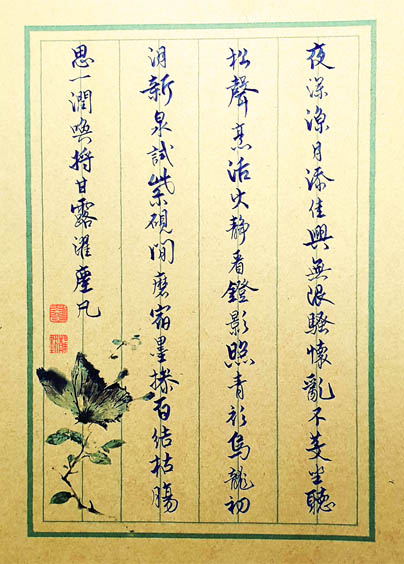 夜深涼月添佳興無限騷懷亂不芟坐聽
松聲烹活火靜看鐙影照青衫烏龍初
新泉試紫硯閒磨宿墨摻百結枯腸
思一潤喚將甘露濯塵凡